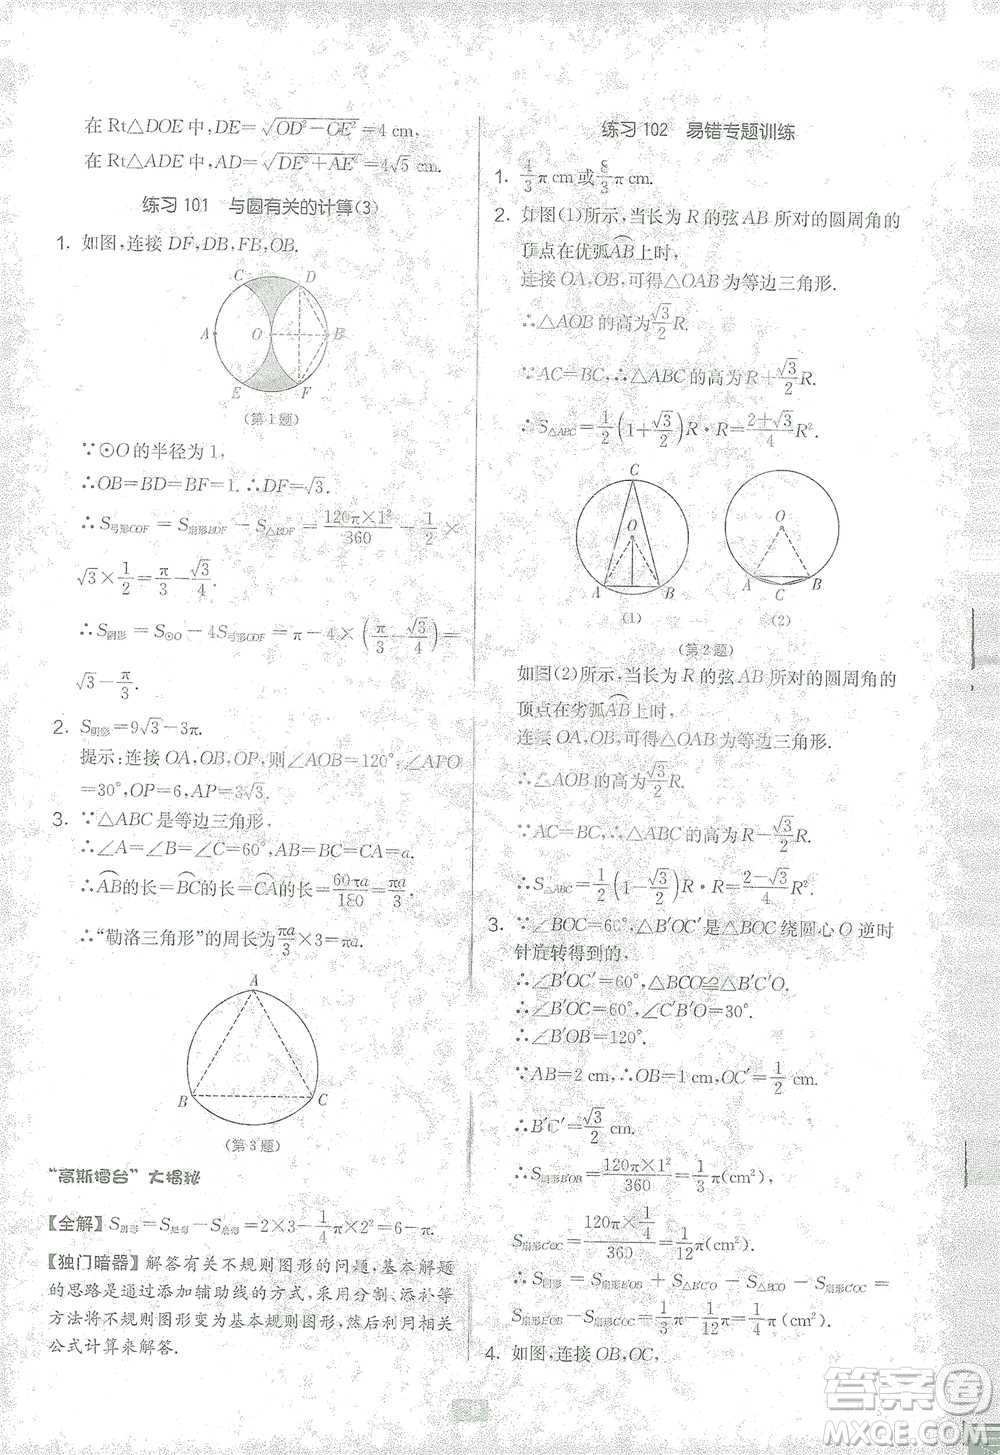 在 Rt△DOE 中,DE=√(OD²−OE²)=4 cm,
在 Rt△ADE 中,AD=√(DE²+AE²)=4√5 cm.
练习 101 与圆有关的计算(3)
1. 如图,连接 DF,DB,FB,OB.
C D
A O B
E F
(第 1 题)
∵⊙O 的半径为 1,
∴OB=BD=BF=1. ∴DF=√3.
∴S弓形CDF=S扇形BDF−S△BDF=120π×1²/360−1/2×
√3×1/2=π/3−√3/4.
∴S阴影=S⊙O−4S弓形CDF=π−4×(π/3−√3/4)=
√3−π/3.
2. S阴影=9√3−3π.
提示:连接 OA,OB,OP,则∠AOB=120°,∠APO
=30°,OP=6,AP=3√3.
3. ∵△ABC 是等边三角形,
∴∠A=∠B=∠C=60°,AB=BC=CA=a.
∴A͡B的长=B͡C的长=C͡A的长=60πa/180=πa/3.
∴“勒洛三角形”的周长为πa/3×3=πa.
A
B C
(第 3 题)
“高斯擂台”大揭秘
【全解】S阴影=S矩形−S扇形=2×3−1/4π×2²=6−π.
【独门暗器】解答有关不规则图形的问题,基本解题
的思路是通过添加辅助线的方式,采用分割、添补等
方法将不规则图形变为基本规则图形,然后利用相关
公式计算来解答.
练习 102 易错专题训练
1. 4/3π cm 或8/3π cm.
2. 如图(1)所示,当长为 R 的弦 AB 所对的圆周角的
顶点在优弧A͡B上时,
连接 OA,OB,可得△OAB 为等边三角形.
∴△AOB 的高为√3/2R.
∵AC=BC,∴△ABC 的高为 R+√3/2R.
∴S△ABC=1/2(1+√3/2)R·R=(2+√3)/4R².
C
O O
A B A C B
(1) (2)
(第 2 题)
如图(2)所示,当长为 R 的弦 AB 所对的圆周角的
顶点在劣弧A͡B上时,
连接 OA,OB,可得△OAB 为等边三角形.
∴△AOB 的高为√3/2R.
∵AC=BC,∴△ABC 的高为 R−√3/2R.
∴S△ABC=1/2(1−√3/2)R·R=(2−√3)/4R².
3. ∵∠BOC=60°,△B′OC′是△BOC 绕圆心 O 逆时
针旋转得到的,
∴∠B′OC′=60°,△BCO≌△B′C′O.
∴∠B′OC=60°,∠C′B′O=30°.
∴∠B′OB=120°.
∵AB=2 cm,∴OB=1 cm,OC′=1/2 cm.
∴B′C′=√3/2.
∴S扇形B′OB=120π×1²/360=1/3π(cm²).
S扇形C′OC=(120π×1/4)/360=1/12π(cm²).
∴S阴影=S扇形B′OB+S△B′C′O−S△BCO−S扇形C′OC=
S扇形B′OB−S扇形C′OC=1/3π−1/12π=1/4π(cm²).
4. 如图,连接 OB,OC,
答案圈
MXQE.COM